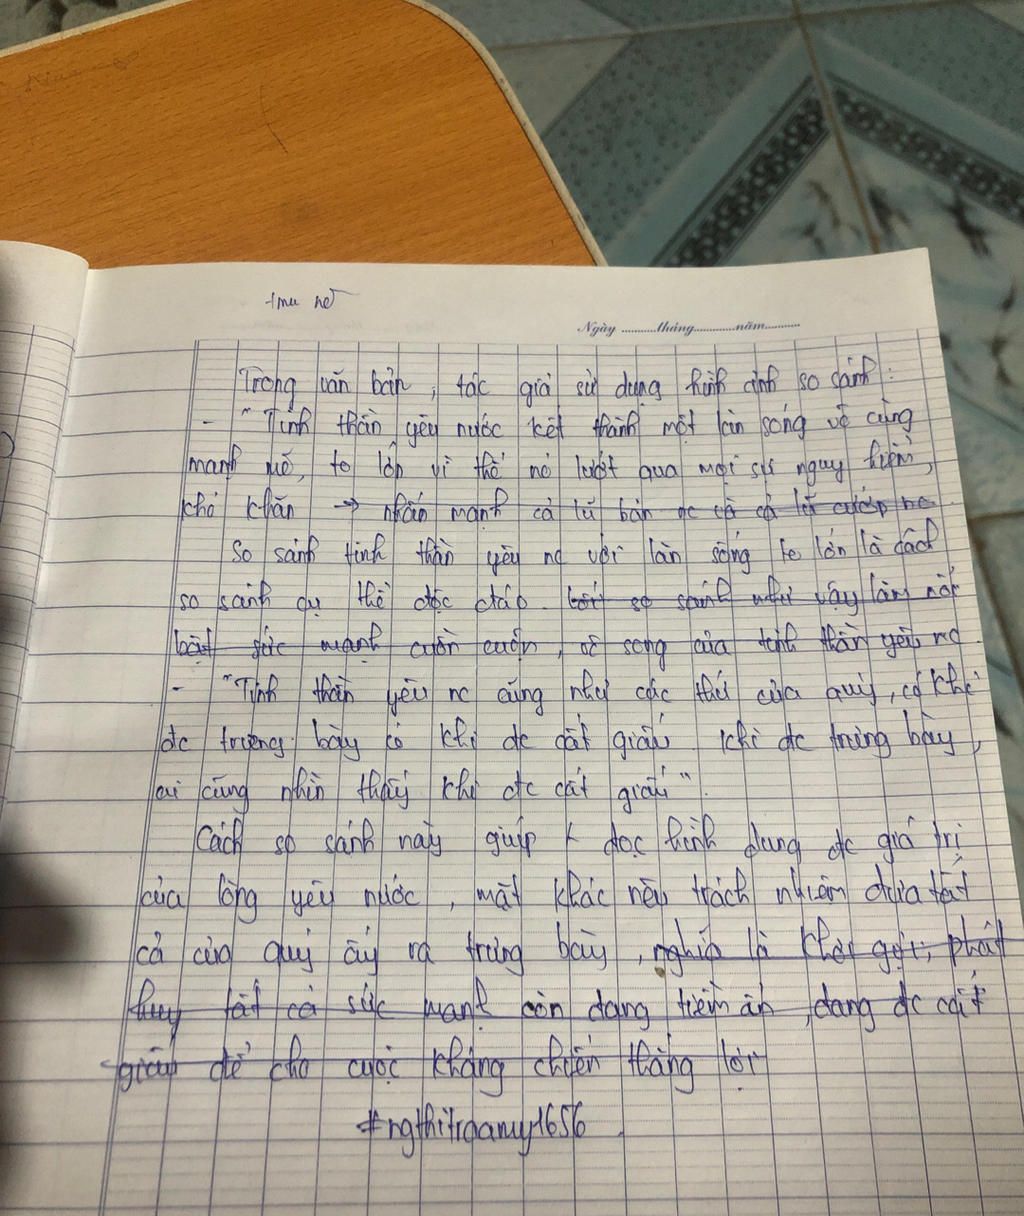 Ngày ..........tháng..........năm..........
Trong văn bản, tác giả sử dụng hình ảnh so sánh:
- "Tinh thần yêu nước kết thành một làn sóng vô cùng
mạnh mẽ, to lớn vì thế nó lướt qua mọi sự nguy hiểm,
khó khăn → nhấn mạnh cả lũ bán nc và cả lũ cướp nc
So sánh tinh thần yêu nc với làn sóng to lớn là cách
so sánh cụ thể độc đáo. so sánh như vậy làm nổi
bật sức mạnh cuồn cuộn, vô song của tinh thần yêu nc
- "Tinh thần yêu nc cũng như các thứ của quý, có khi
đc trưng bày có khi đc cất giấu khi đc trưng bày,
ai cũng nhìn thấy khi đc cất giấu".
Cách so sánh này giúp đọc hình dung đc giá trị
của lòng yêu nước, mặt khác nêu trách nhiệm đưa tất
cả của quý ấy ra trưng bày, nghĩa là khơi gợi, phát
huy tất cả sức mạnh còn đang tiềm ẩn, đang đc cất
giấu để cho cuộc kháng chiến thắng lợi